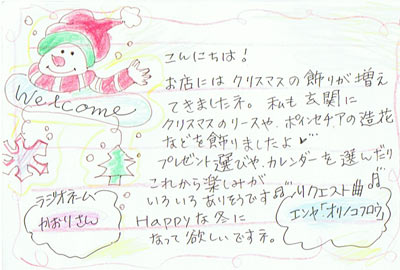 Welcome
こんにちは!
お店には クリスマスの飾りが増え
てきましたネ。私も玄関に
クリスマスのリースや、ポインセチアの造花
などを飾りましたよ♥…
プレゼント選びや、カレンダーを選んだり
これから楽しみが
いろいろありそうです♫
Happyな冬に
なって欲しいですネ。
ラジオネーム
かおりさん
リクエスト曲
エンヤ「オリノコフロウ」